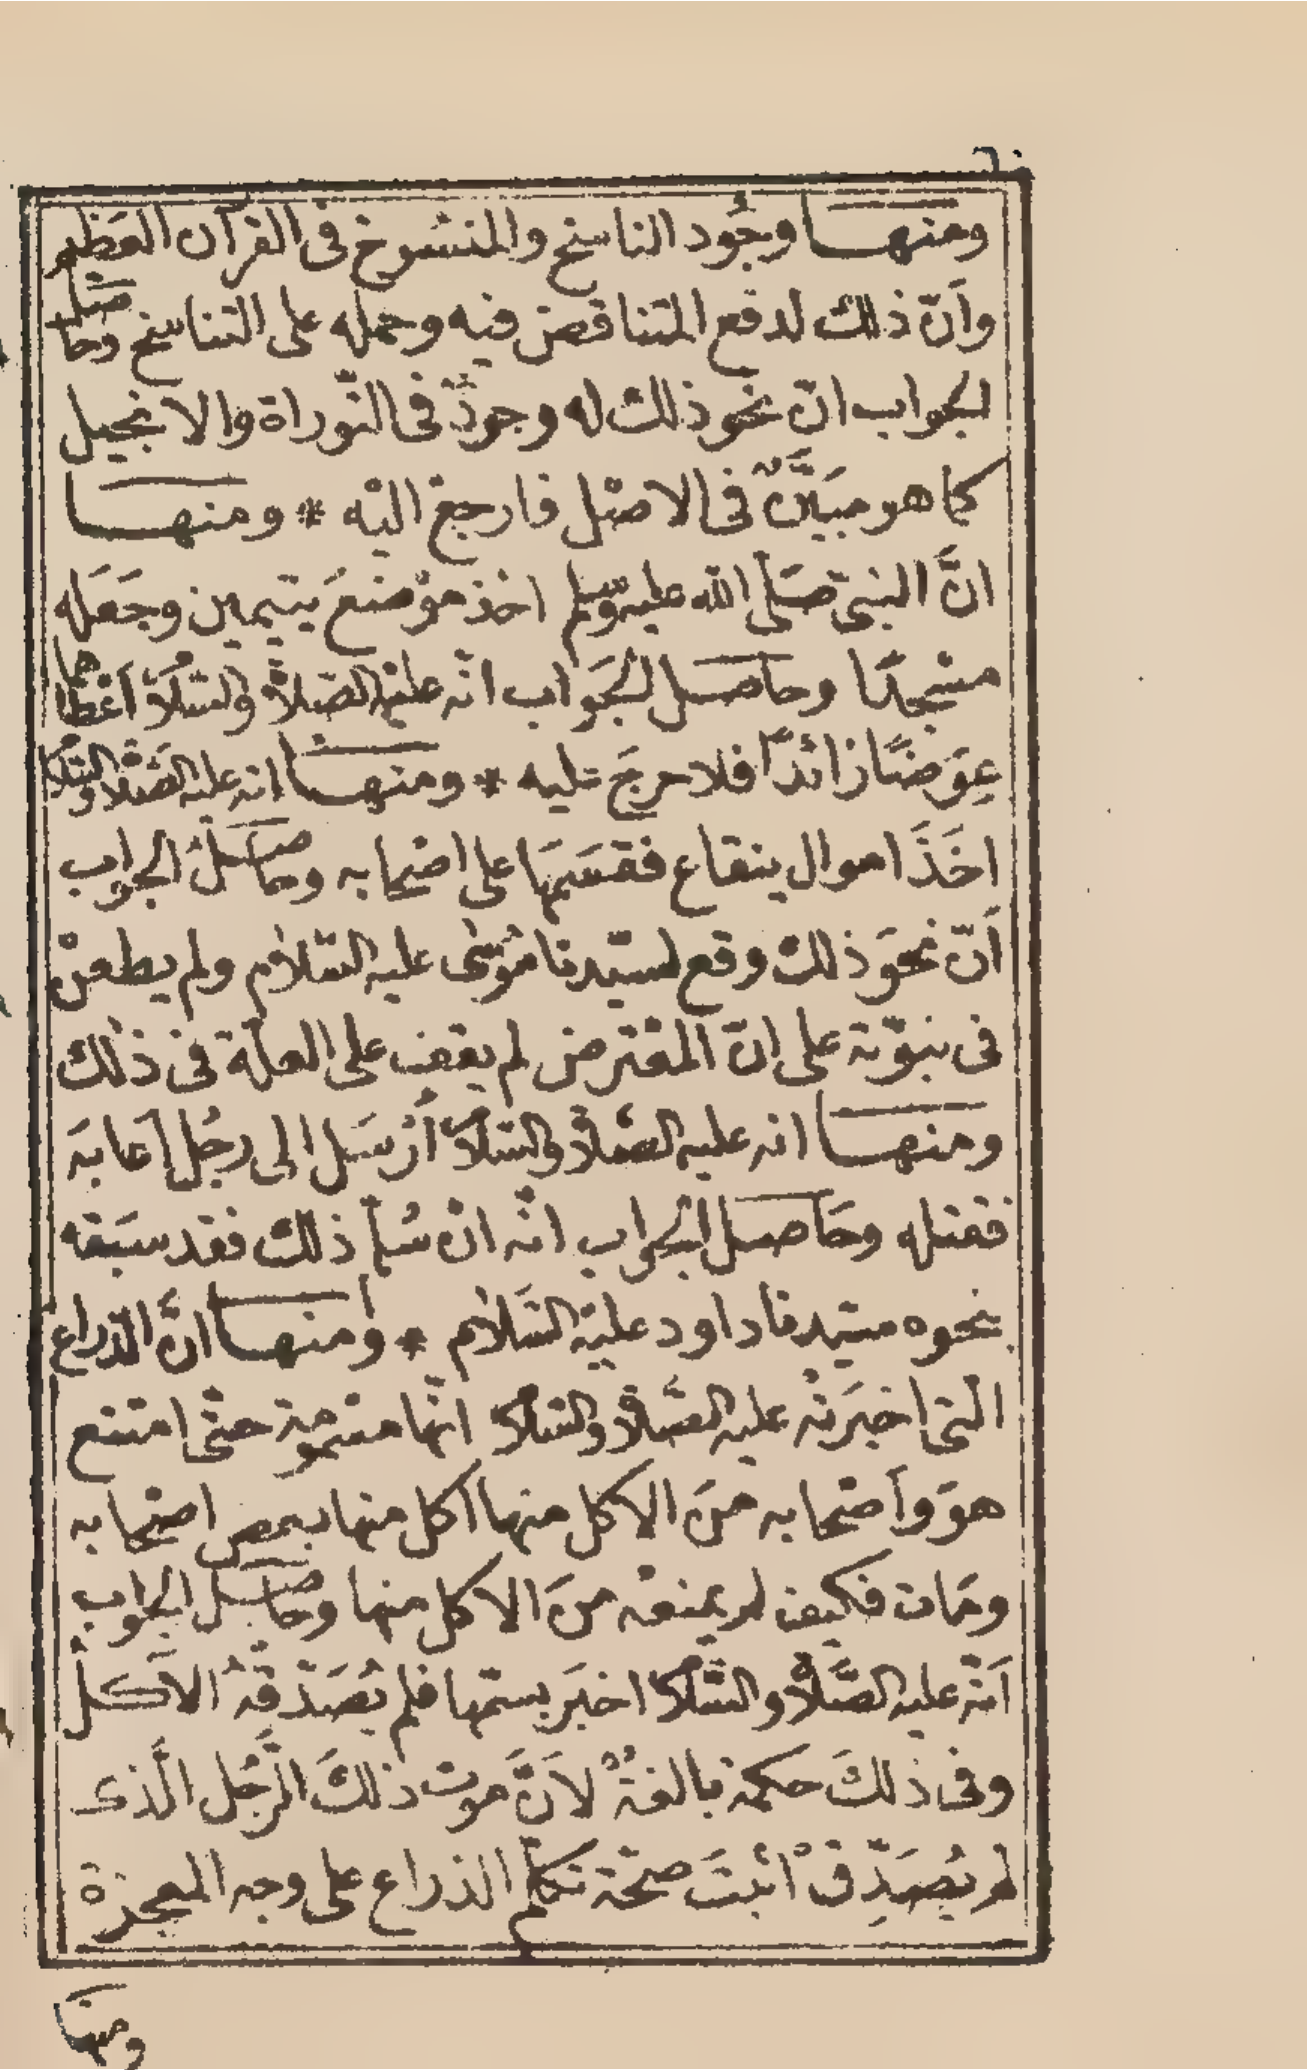 ومنها وجُود الناسخ والمنسُوخ فى القرآن العَظيم
وَاَنّ ذلك لدفع المتناقض فيه وحمله على التناسخ وحاصل
الجواب انّ نحو ذلك له وجودٌ فى التّوراة والانجيل
كما هو مبَيَّنٌ فى الاصْل فارجعْ اليْه * ومنها
انَّ النبىّ صَلّى الله عليه وسّلم اخذ موْضعَ يتيمين وجَعَله
مسْجدًا وحاصل الجَواب انّه عليْه الصّلاةُ والسّلامُ اعْطاهما
عِوَضًا زائدًا فلا حرجَ عليه * ومنها انه عليه الصَّلاةُ والسّلامُ
اخَذَ اموال ينقاع فقسَمَها على اصْحابه وحاصلُ الجواب
اَنّ نحوَ ذلك وقع لسيّدنا مُوسٰى عليه السّلام ولم يطعنْ
فى نبوّته على انّ المعْترض لم يقف على العلّة فى ذلك
ومنها انه عليه الصّلاةُ والسّلامُ أرْسَل الى رجُل اَعابَه
فقتله وحَاصل الجواب انّه انْ سُلّم ذلك فقد سبَقه
بنحوه سيّدنا داود عليْه السَّلام * ومنها انَّ الذّراع
الّتى اخبَرتْه عليه الصَّلاةُ والسّلامُ انّها مسْمومة حتّى امتنع
هوَ واَصْحابه منَ الاكل منها اكل منها بعض اصْحابه
ومَات فكيف لم يمنعْه منَ الاكل منها وحاصل الجواب
اَنّه عليه الصَّلاةُ والسَّلامُ اخبَر بسمّها فلم يُصَدّقْهُ الآكلُ
وفى ذلكَ حكمة بالغةٌ لاَنَّ موت ذلكَ الرَّجُل الَّذى
لم يُصَدِّقْ اثبتَ صحّة تكلّم الذراع على وجه المعجزة
ومنها